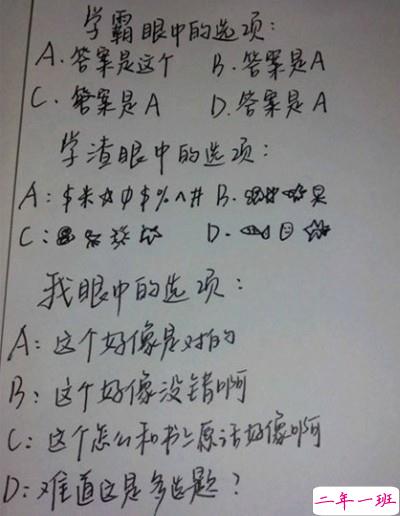 学霸眼中的选项:
A.答案是这个 B.答案是A
C.答案是A D.答案是A
学渣眼中的选项:
A:$米☆φ$%^# B.
C: D.
我眼中的选项:
A:这个好像是对的
B:这个好像没错啊
C:这个怎么和书上原话好像啊
D:难道这是多选题?
二年一班